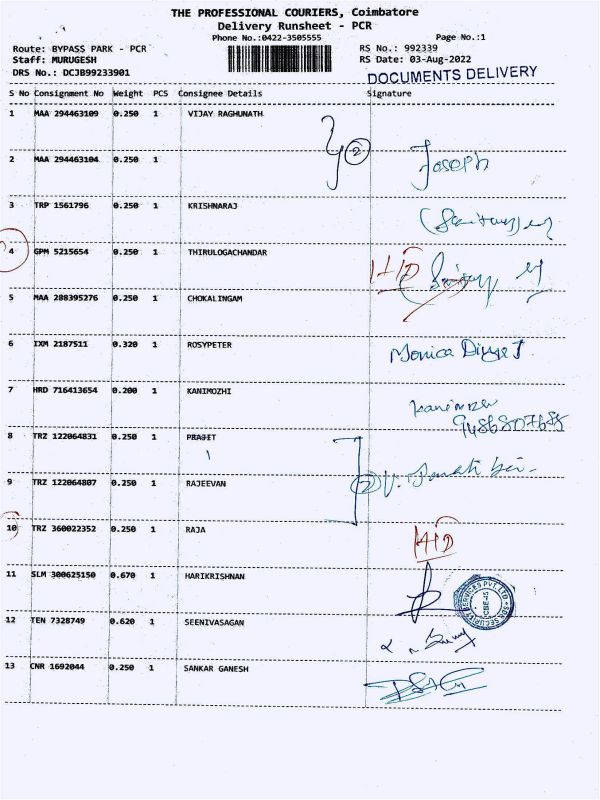 THE PROFESSIONAL COURIERS, Coimbatore
Delivery Runsheet - PCR
Phone No.:0422-3505555 Page No.:1
Route: BYPASS PARK - PCR RS No.: 992339
Staff: MURUGESH RS Date: 03-Aug-2022
DRS No.: DCJB99233901 DOCUMENTS DELIVERY
S No Consignment No Weight PCS Consignee Details Signature
1 MAA 294463109 0.250 1 VIJAY RAGHUNATH
2
2 MAA 294463104 0.250 1 Joseph
3 TRP 1561796 0.250 1 KRISHNARAJ
4 GPM 5215654 0.250 1 THIRULOGACHANDAR
5 MAA 288395276 0.250 1 CHOKALINGAM
6 IXM 2187511 0.320 1 ROSYPETER Monica
7 HRD 716413654 0.200 1 KANIMOZHI
9486807685
8 TRZ 122064831 0.250 1 PRAJET
1
9 TRZ 122064807 0.250 1 RAJEEVAN 2
10 TRZ 360022352 0.250 1 RAJA
11 SLM 300625150 0.670 1 HARIKRISHNAN
12 TEN 7328749 0.620 1 SEENIVASAGAN
13 CNR 1692044 0.250 1 SANKAR GANESH